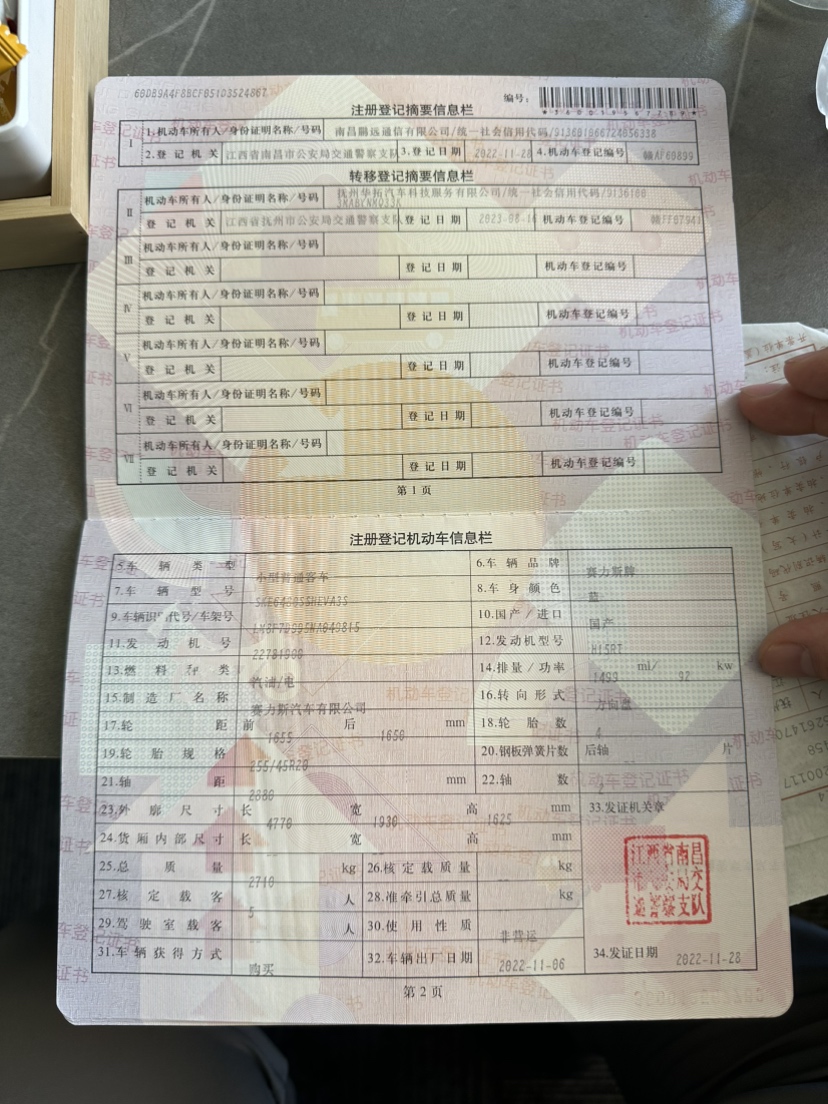 60DB9A4F8BCF051D3524867
编号:
注册登记摘要信息栏
I 1.机动车所有人/身份证明名称/号码 南昌鹏远通信有限公司/统一社会信用代码/
2.登记机关 江西省南昌市公安局交通警察支队 3.登记日期 2022-11-28 4.机动车登记编号
转移登记摘要信息栏
II 机动车所有人/身份证明名称/号码 抚州华拓汽车科技服务有限公司/统一社会信用代码/9136100
登记机关 江西省抚州市公安局交通警察支队 登记日期 机动车登记编号
III 机动车所有人/身份证明名称/号码
登记机关 登记日期 机动车登记编号
IV 机动车所有人/身份证明名称/号码
登记机关 登记日期 机动车登记编号
V 机动车所有人/身份证明名称/号码
登记机关 登记日期 机动车登记编号
VI 机动车所有人/身份证明名称/号码
登记机关 登记日期 机动车登记编号
VII 机动车所有人/身份证明名称/号码
登记机关 登记日期 机动车登记编号
第1页
注册登记机动车信息栏
5.车辆类型 小型普通客车 6.车辆品牌 赛力斯牌
7.车辆型号 8.车身颜色 蓝
9.车辆识别代号/车架号 10.国产/进口 国产
11.发动机号 12.发动机型号 H15RT
13.燃料种类 汽油/电 14.排量/功率 1499 ml/ 92 kw
15.制造厂名称 赛力斯汽车有限公司 16.转向形式 方向盘
17.轮距 前 1655 后 1650 mm 18.轮胎数 4
19.轮胎规格 255/45R20 20.钢板弹簧片数 后轴 -- 片
21.轴距 2880 mm 22.轴数 2
23.外廓尺寸 长 4770 宽 1930 高 1625 mm 33.发证机关章
24.货厢内部尺寸 长 宽 高 mm
25.总质量 2710 kg 26.核定载质量 -- kg
27.核定载客 5 人 28.准牵引总质量 -- kg
29.驾驶室载客 -- 人 30.使用性质 非营运
31.车辆获得方式 购买 32.车辆出厂日期 2022-11-06 34.发证日期 2022-11-28
第2页